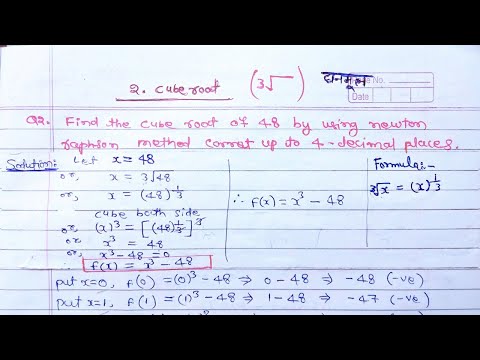 2. Cube root (3√‾) घनमूल
Page No.
Date
Q2. Find the cube root of 48 by using newton
raphson method correct up to 4-decimal places.
Solution:- Let x = 48
or, x = 3√48
or, x = (48)^1/3
cube both side
or (x)³ = [(48)^1/3]^3
or x³ = 48
or, x³-48=0
∴ f(x) = x³-48
∴ f(x) = x³ - 48
Formula:-
3√x = (x)^1/3
put x=0, f(0) = (0)³-48 ⇒ 0-48 ⇒ -48 (-ve)
put x=1, f(1) = (1)³-48 ⇒ 1-48 ⇒ -47 (-ve)